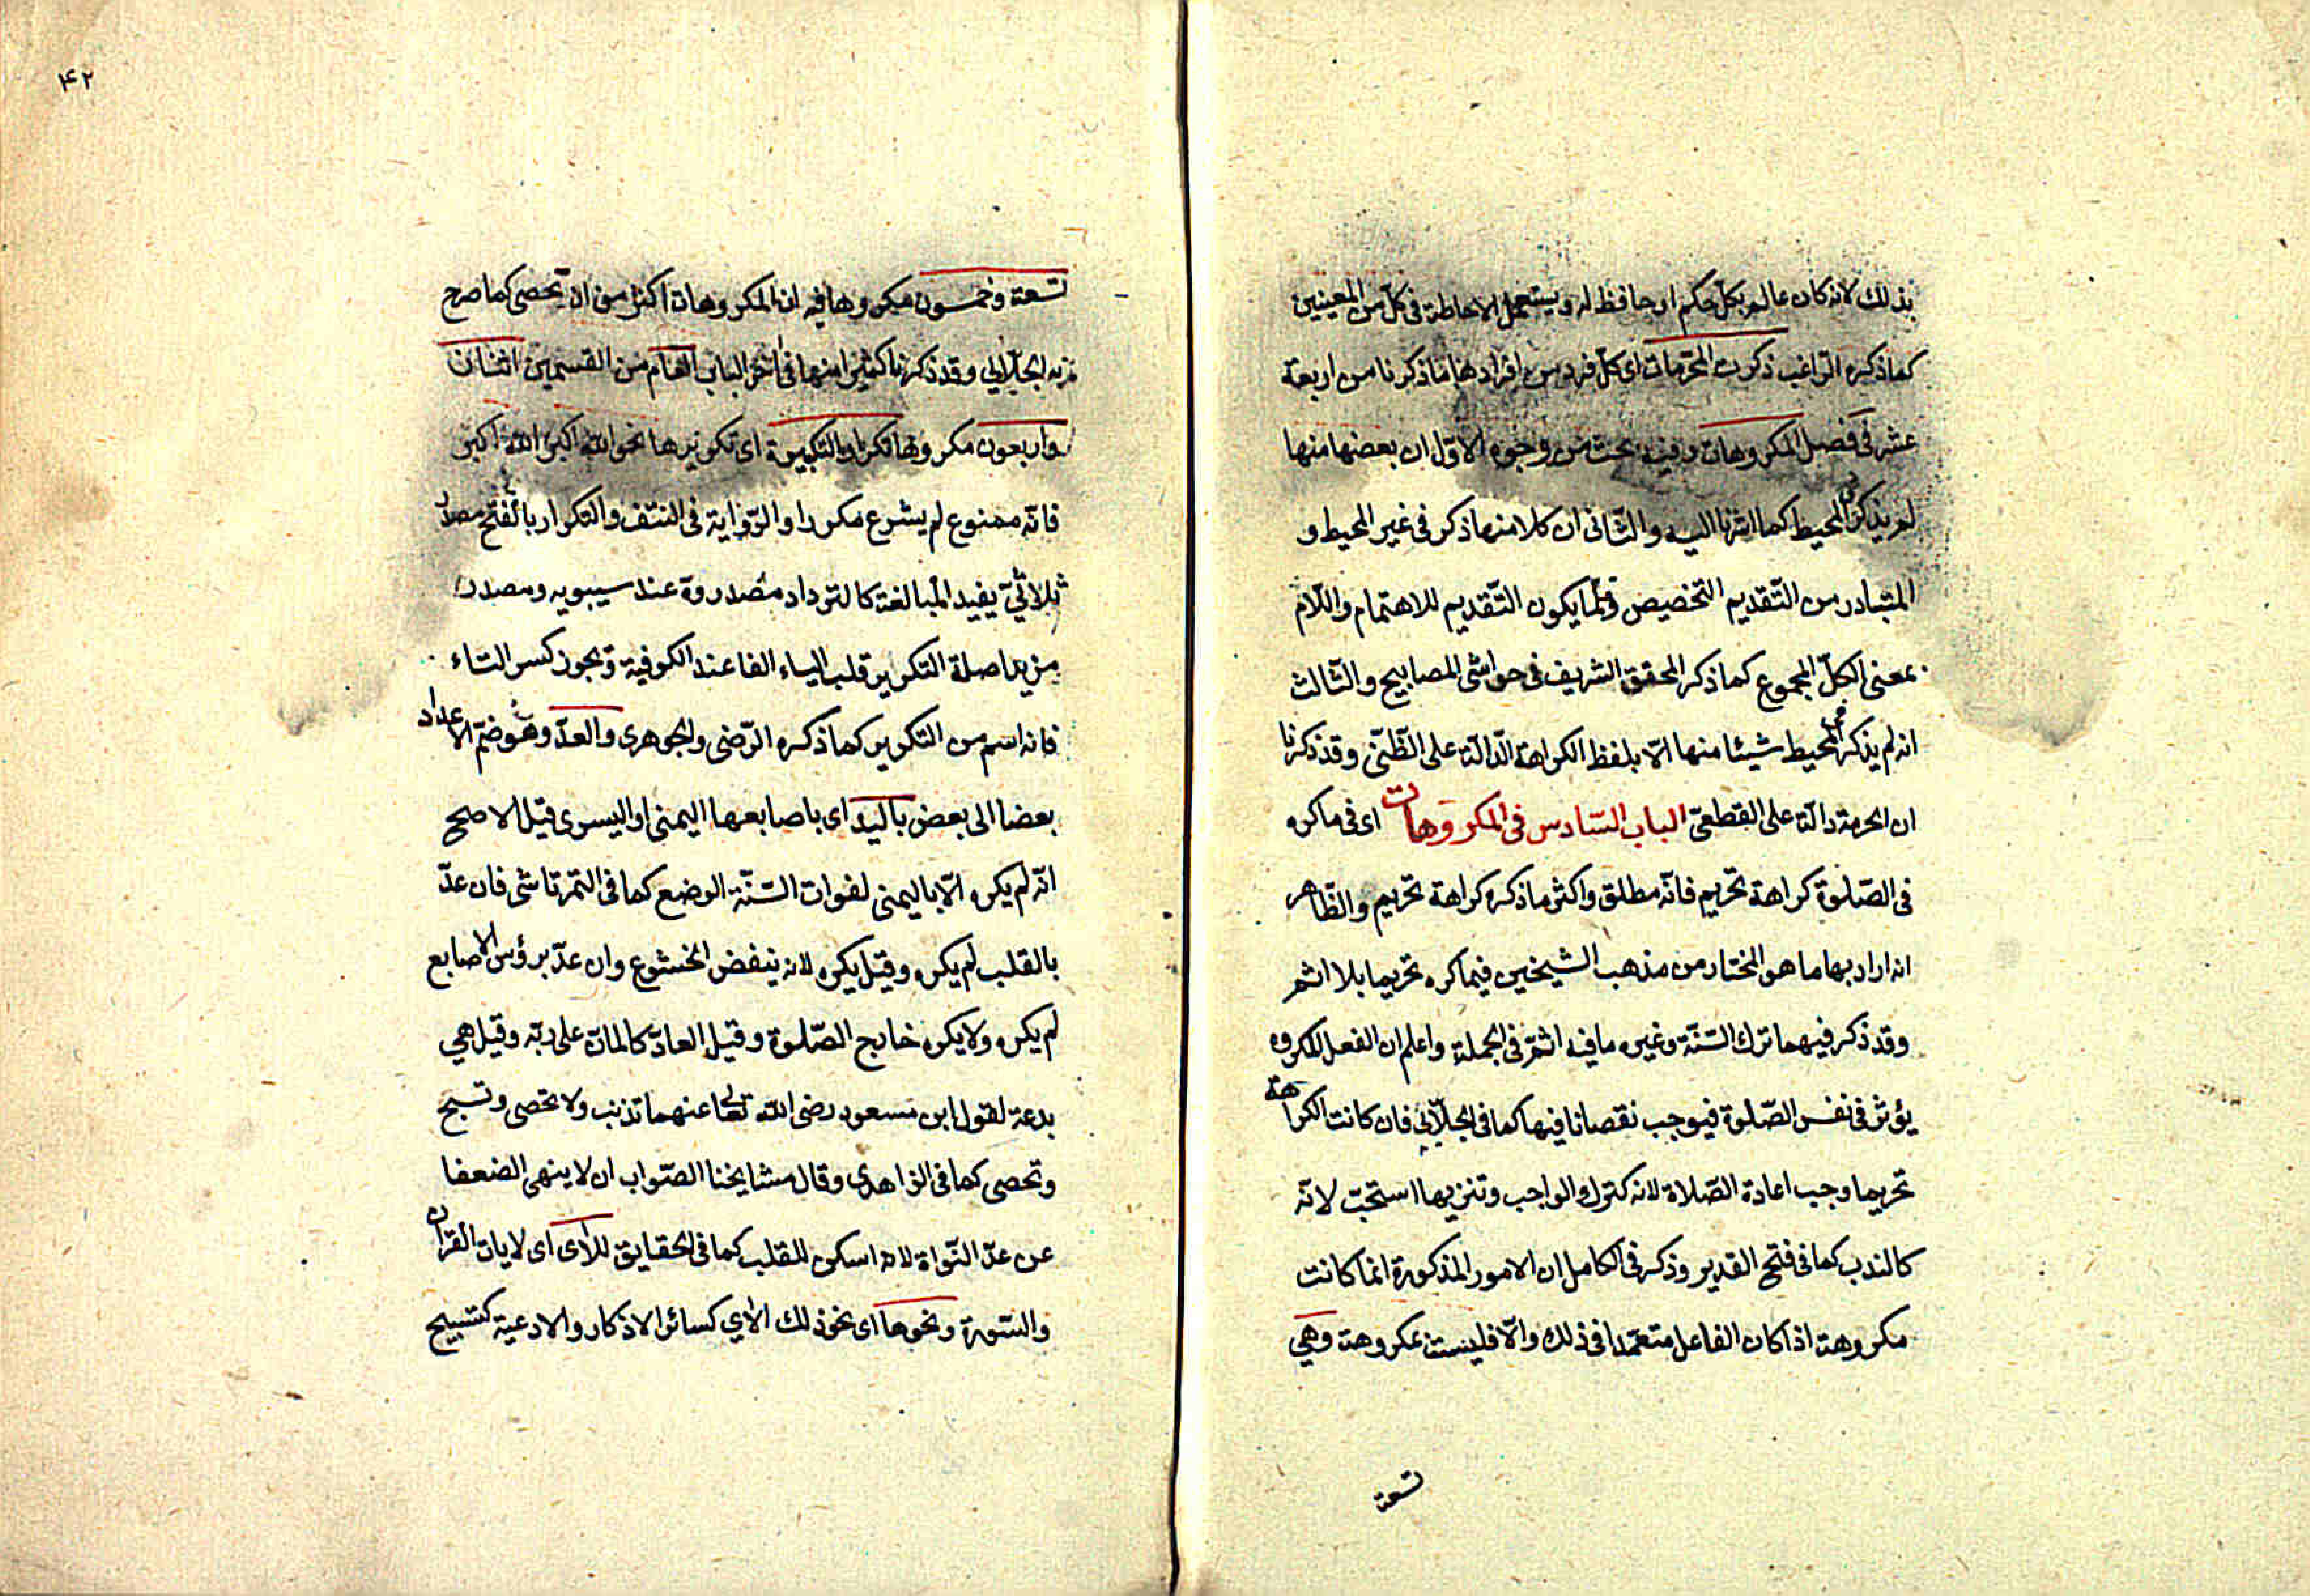 بذلك لانه كان عالم بكل حكم او حافظ له ويستعمل الاحاطة فى كل من المعنيين
كما ذكره الراغب ذكرت المحرمات اى كل فرد من افرادها ما ذكرنا من اربعة
عشر فى فصل المكروهات وفيه بحث من وجوه الاوّل ان بعضها منها
لم يذكر فى المحيط كما اشرنا اليه والثّانى ان كلا منها ذكر فى غير المحيط و
المتبادر من التّقديم التخصيص وقلّما يكون التّقديم للاهتمام واللّام
بمعنى الكلّ المجموع كما ذكر المحقق الشريف فى حواشى المصابيح والثّالث
انه لم يذكر فى المحيط شيئا منها الّا بلفظ الكراهة الدّالة على الظّنّى وقد ذكرنا
ان الحرمة دالّة على القطعىّ الباب السّادس فى المكروهات اى فى ما كره
فى الصّلوة كراهة تحريم فانّه مطلق واكثر ما ذكره كراهة تحريم والظّاهر
انه اراد بها ما هو المختار من مذهب الشيخين فيما كره تحريما بلا اثم
وقد ذكر فيهما ترك السّنّة وغيره ما فيه اثم فى الجملة واعلم ان الفعل المكروه
يؤثر فى نفس الصّلوة فيوجب نقصانا فيها كما فى الجلّابى فان كانت الكراهة
تحريما وجب اعادة الصّلاة لانه كترك الواجب وتنزيها استحبّ لانّه
كالندب كما فى فتح القدير وذكر فى الكامل ان الامور المذكورة انما كانت
مكروهة اذا كان الفاعل متعمّدا فى ذلك والّا فليست بمكروهة وهى
تسعة
۴۲
تسعة وخمسون مكروها فيه ان المكروهات اكثر من ان تحصى كما صرح
به الجلّابى وقد ذكرنا كثيرا منها فى آخر الباب العام من القسمين اثنان
واربعون مكروها تكرار التكبيرة اى تكريرها نحو الله اكبر الله اكبر
فانّه ممنوع لم يشرع مكررا والرّواية فى النتف والتكرار بالفتح مصدر
ثلاثىّ يفيد المبالغة كالترداد مصدر ردّ عند سيبويه ومصدر
مزيد اصله التكرير قلب الياء الفا عند الكوفية ويجوز كسر التاء
فانه اسم من التكرير كما ذكره الرّضى والجوهرى والعدّ وهو ضمّ الاعداد
بعضا الى بعض باليد اى باصابعها اليمنى او اليسرى قيل الاصح
انّه لم يكره الّا باليمنى لفوات السّنّة الوضع كما فى التمرتاشى فان عدّ
بالقلب لم يكره وقيل يكره لانه ينقض الخشوع وان عدّ برؤس الاصابع
لم يكره ولا يكره خارج الصّلوة وقيل العادّ كالمانّ على ربّه وقيل هى
بدعة لقول ابن مسعود رضى الله تعالى عنهما تذنب ولا تحصى وتسبح
وتحصى كما فى الزاهدى وقال مشايخنا الصّواب ان لا ينهى الضعفا
عن عدّ النّواة لانه اسكن للقلب كما فى الحقايق للآى اى لايات القرآن
والسّورة ونحوها اى نحو ذلك الآي كسائر الاذكار والادعية كتسبيح